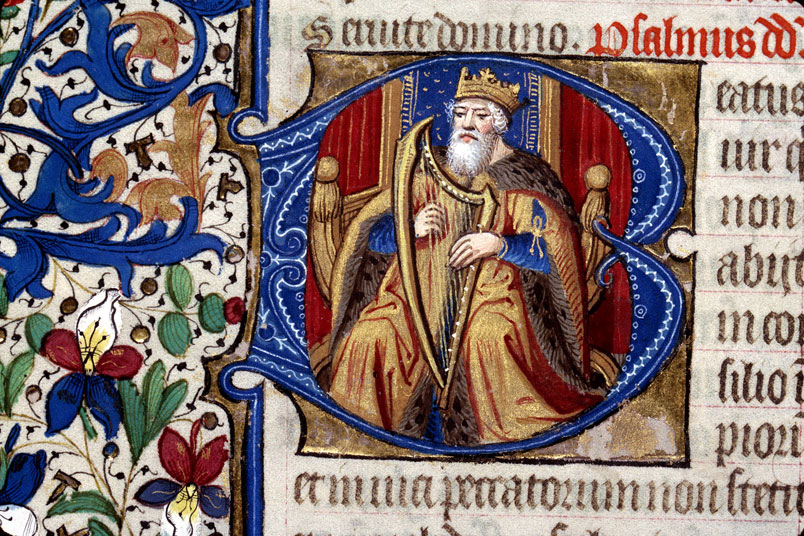 Seruite domino. Psalmus dd
Beatus
uir q
non
abijt
in con
silio i
piori
et in uia peccatorum non stetit